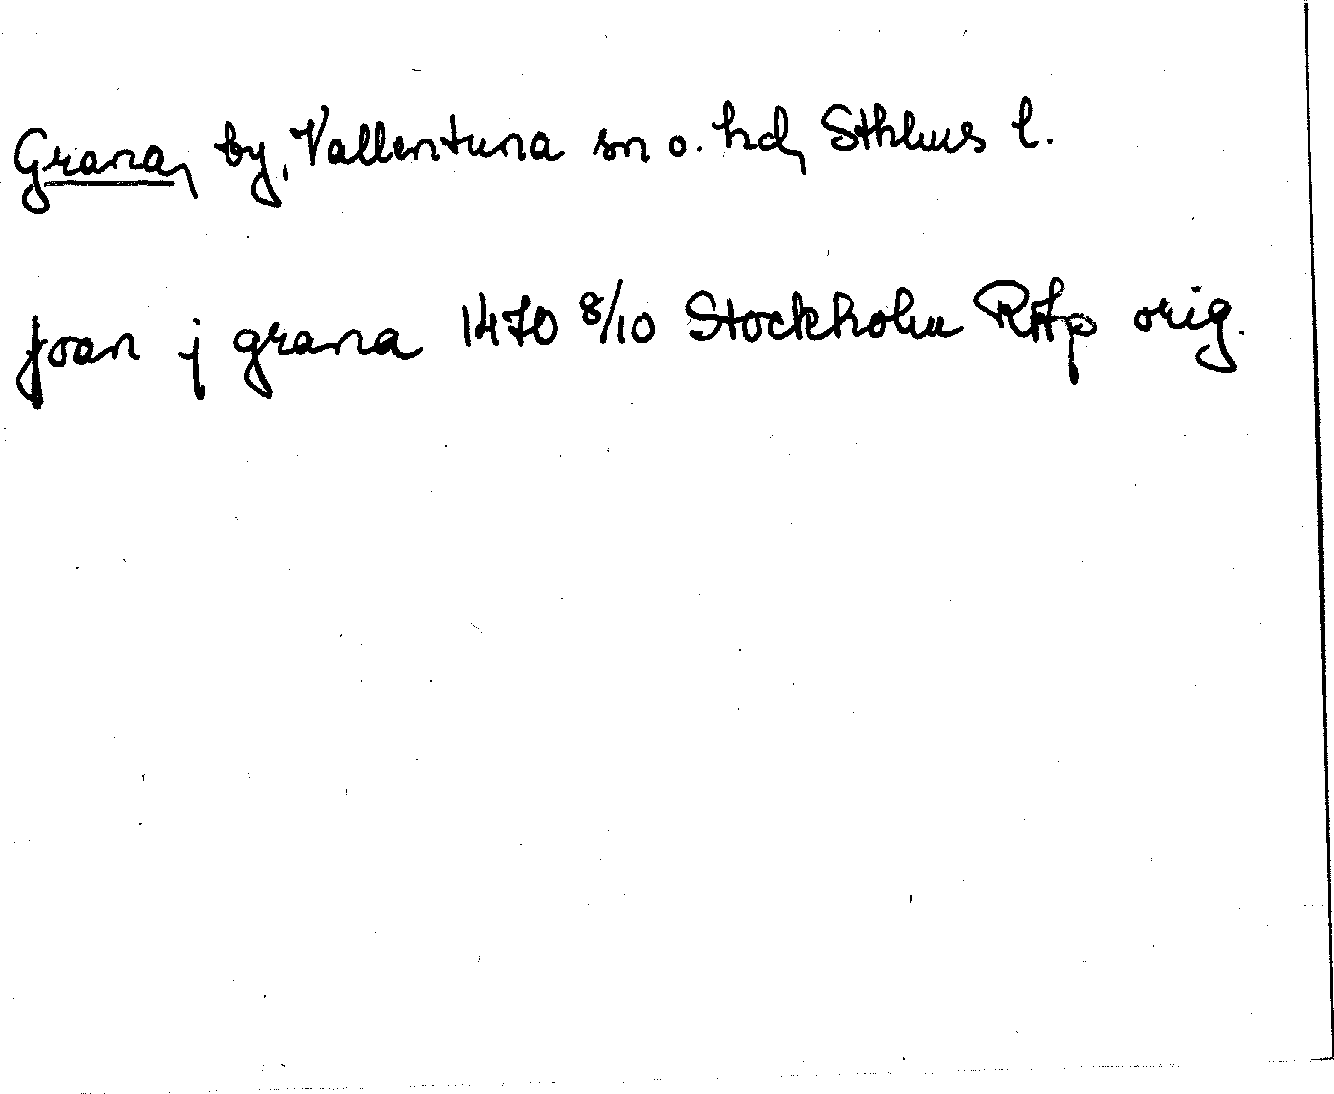 Grana, by, Vallentuna sn o. hd, Sthlms l.
joan j grana 1470 8/10 Stockholm RAp orig.